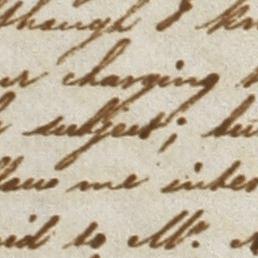 though I kn
ur charging
subject; bu
have me inter
id to Mr.